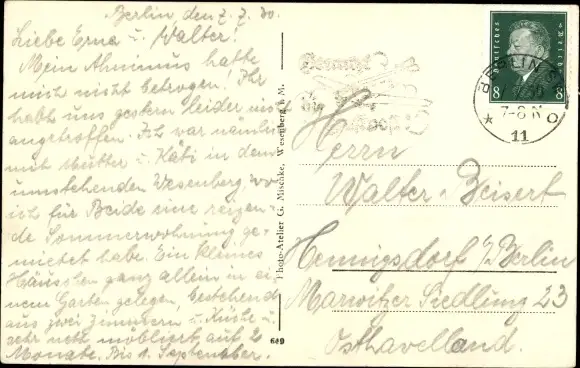 Berlin, den 7. 7. 30.
Liebe Erna u. Walter!
Mein Ahnimus hatte
mich nicht betrogen! Ihr
habt uns gestern leider nicht
angetroffen. Ich war nämlich
mit Mutter u. Käti in dem
umstehenden Wesenberg, wo
ich für Beide eine reizen-
de Sommerwohnung ge-
mietet habe. Ein kleines
Häuschen ganz allein in ei-
nem Garten gelegen, bestehend
aus zwei Zimmern u. Küche u.
sehr nett möbliert auf 2
Monate. Bis 1. September.
Photo-Atelier G. Mischke, Wesenberg i. M.
649
Deutsches Reich
8 8
BERLIN S
7-8 N
* 11 o
Herrn
Walter Zeisert
Hennigsdorf b/Berlin
Marwitzer Siedlung 23
Osthavelland.